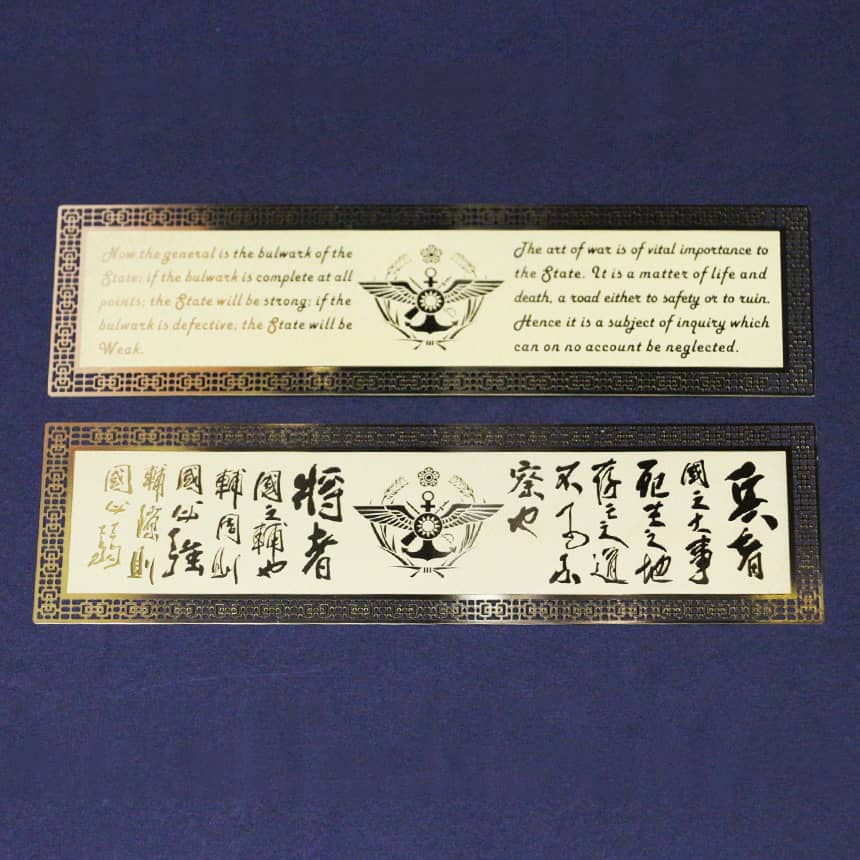 Now the general is the bulwark of the
State; if the bulwark is complete at all
points; the State will be strong; if the
bulwark is defective, the State will be
Weak.
The art of war is of vital importance to
the State. It is a matter of life and
death, a road either to safety or to ruin.
Hence it is a subject of inquiry which
can on no account be neglected.
兵者
國之大事
死生之地
存亡之道
不可不
察也
將者
國之輔也
輔周則
國必強
輔隙則
國必弱